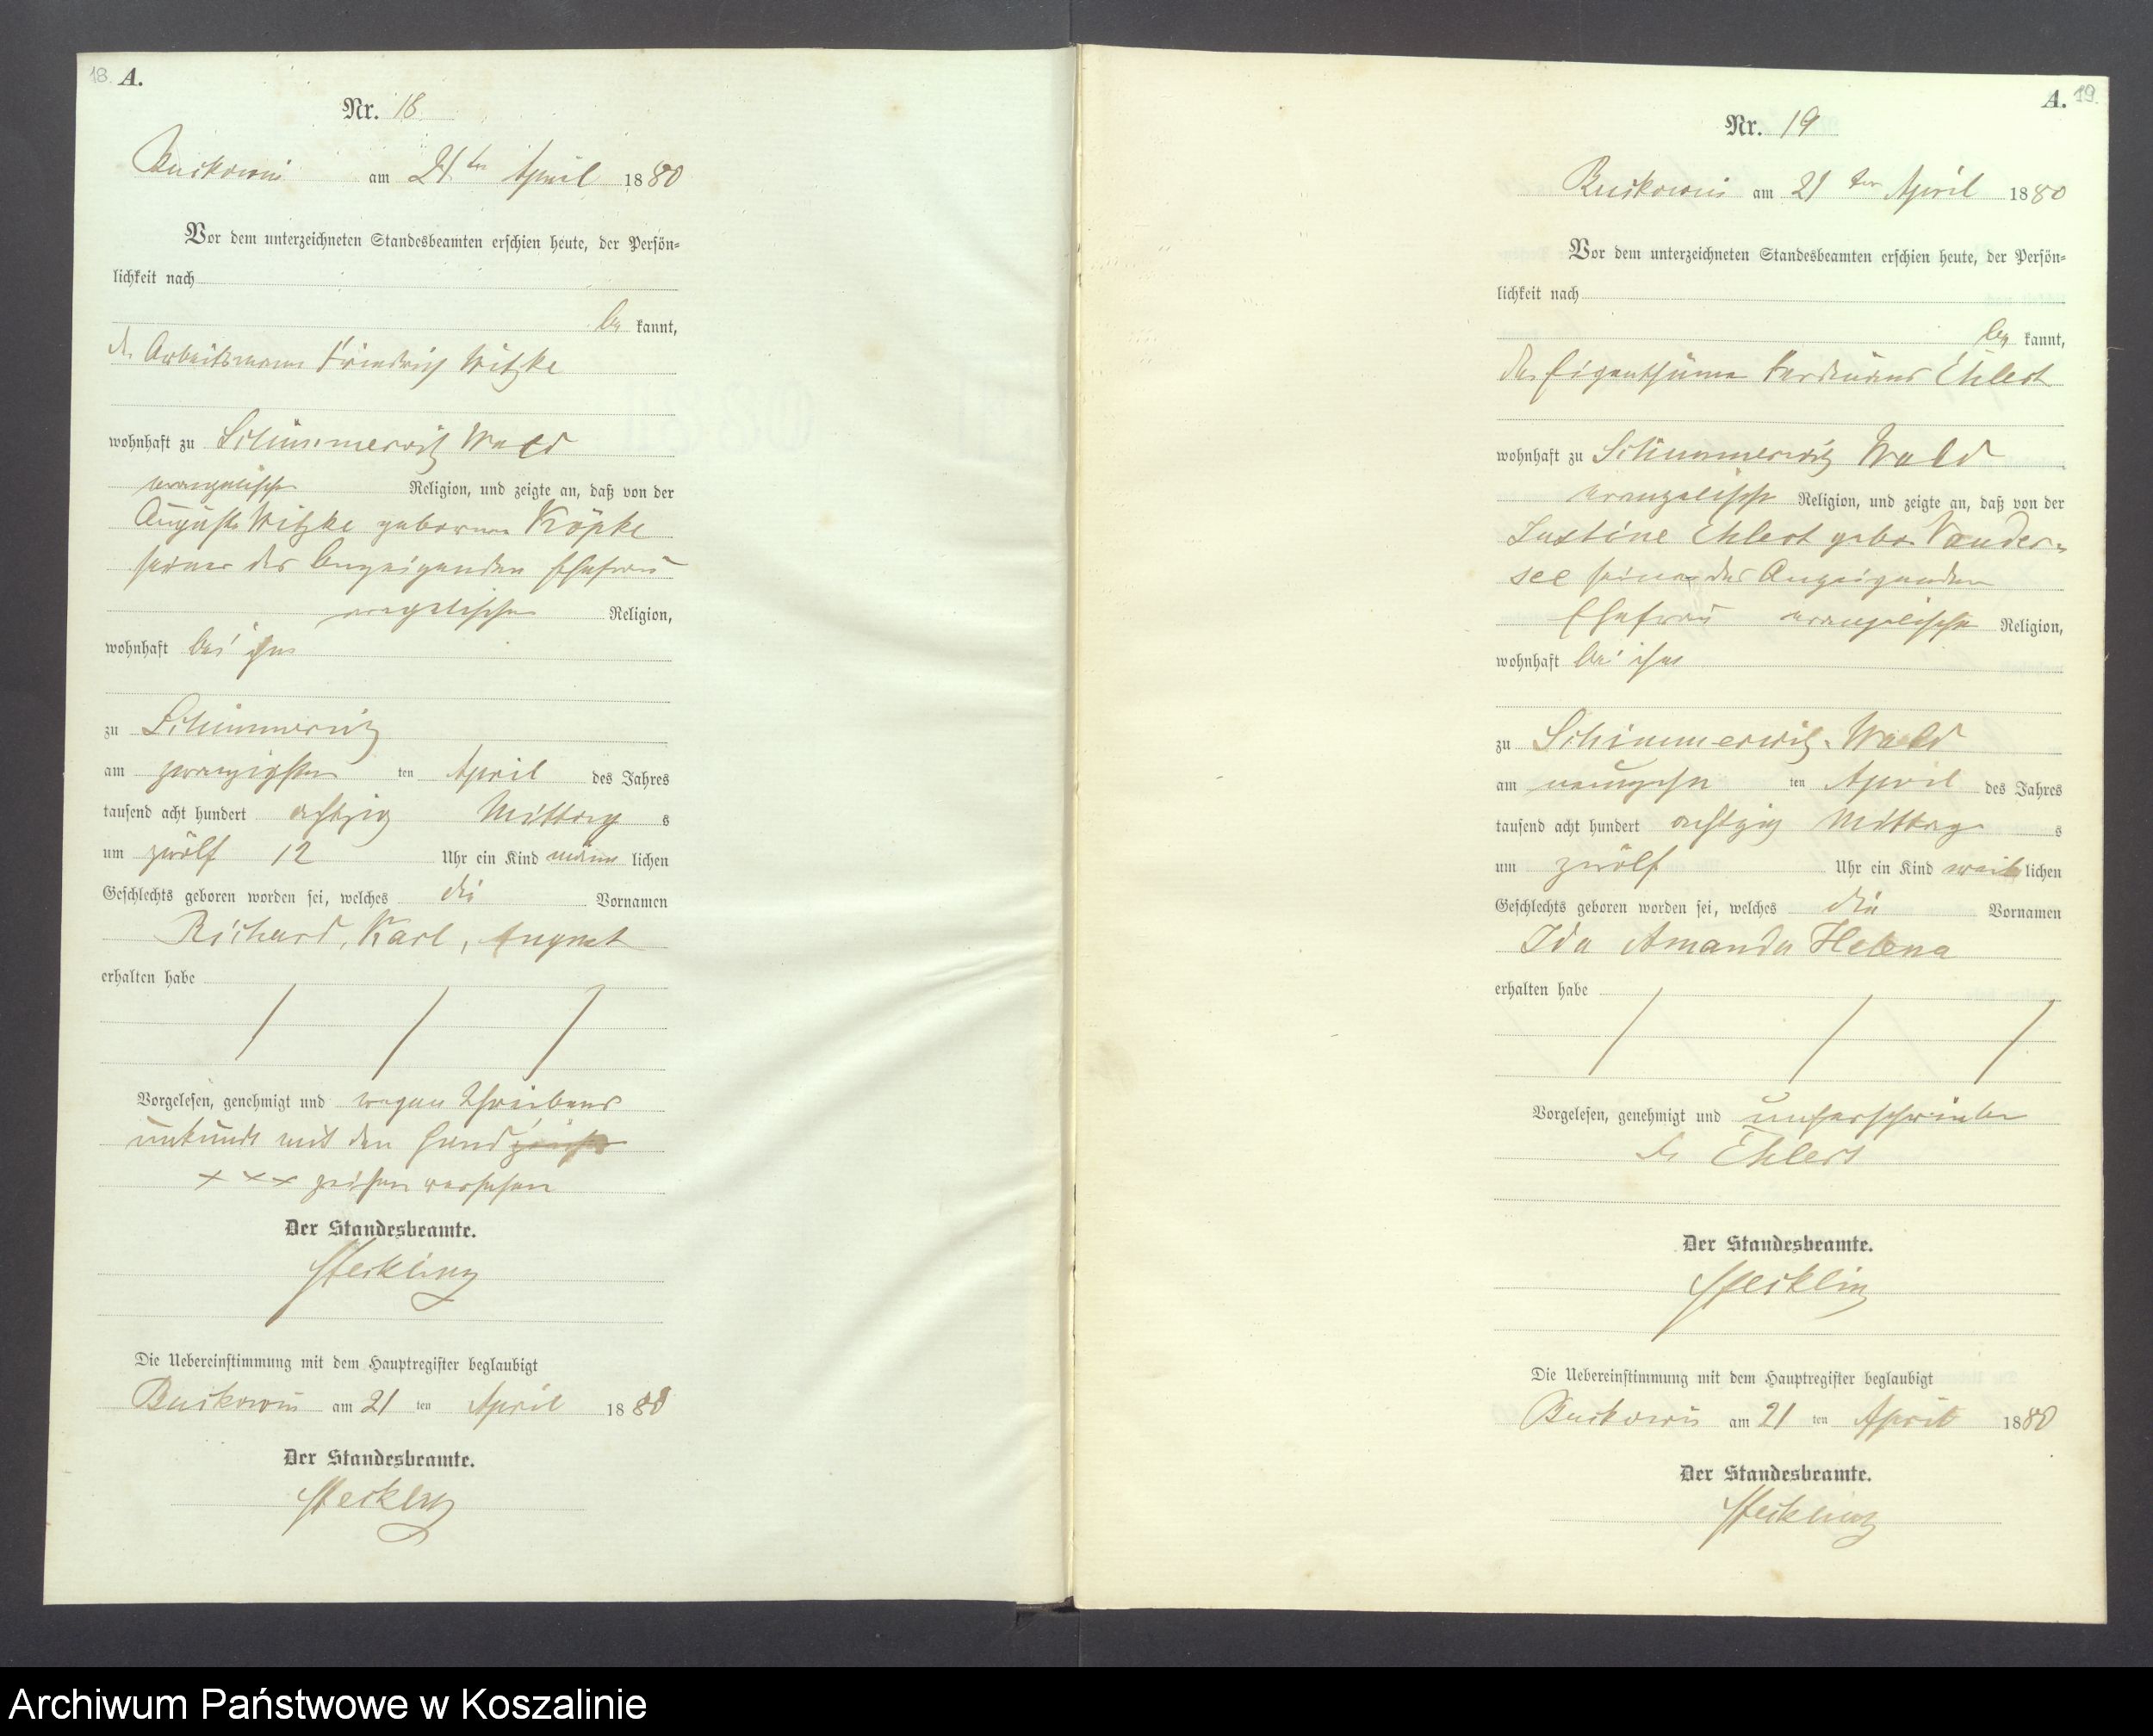 18. A.
Nr. 18.
Buckowin am 21ten April 1880
Vor dem unterzeichneten Standesbeamten erschien heute, der Persön-
lichkeit nach
be kannt,
der Arbeitsmann Friedrich Witzke
wohnhaft zu Schimmerwitz Wald
evangelischer Religion, und zeigte an, daß von der
Auguste Witzke geborenen Köpke
seiner des Anzeigenden Ehefrau
evangelischer Religion,
wohnhaft bei ihm
zu Schimmerwitz
am zwanzigsten ten April des Jahres
tausend acht hundert achtzig Mittag s
um zwölf 12 Uhr ein Kind männ lichen
Geschlechts geboren worden sei, welches die Vornamen
Richard, Karl, August
erhalten habe
Vorgelesen, genehmigt und wegen Schreibens
unkunde mit den Hand
+ + + zeichen versehen
Der Standesbeamte.
Die Uebereinstimmung mit dem Hauptregister beglaubigt
Buckowin am 21 ten April 1880
Der Standesbeamte.
A. 19.
Nr. 19
Buckowin am 21 ten April 1880
Vor dem unterzeichneten Standesbeamten erschien heute, der Persön-
lichkeit nach
be kannt,
der Eigenthümer Ferdinand Ehlert
wohnhaft zu Schimmerwitz Wald
evangelischer Religion, und zeigte an, daß von der
Justine Ehlert gebor. Vander-
see seiner des Anzeigenden
Ehefrau evangelischer Religion,
wohnhaft bei ihm
zu Schimmerwitz-Wald
am neunzehn ten April des Jahres
tausend acht hundert achtzig Mittag s
um zwölf Uhr ein Kind weib lichen
Geschlechts geboren worden sei, welches die Vornamen
Ida Amanda Helena
erhalten habe
Vorgelesen, genehmigt und unterschrieben
Ehlert
Der Standesbeamte.
Die Uebereinstimmung mit dem Hauptregister beglaubigt
Buckowin am 21 ten April 1880
Der Standesbeamte.
Archiwum Państwowe w Koszalinie